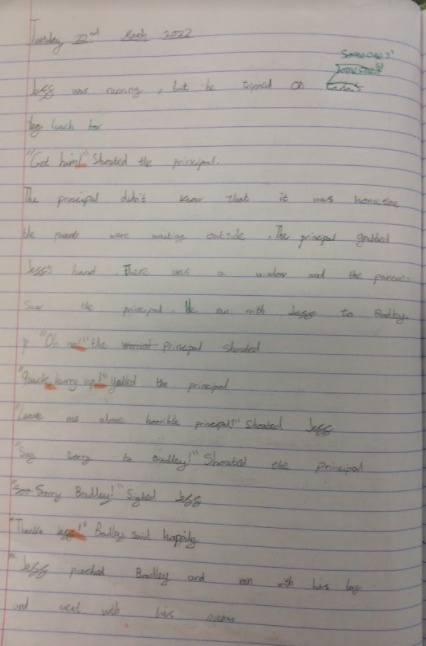 Tuesday 22nd March 2022
Someones'
Jeff was running, but he tripped on
bag lunch box
"Get him!" Shouted the principal.
The principal didn't know that it was hometime
the parents were waiting outside. The principal grabbed
Jeff's hand. There was a window and the parents
Saw the principal. He ran with Jeff to Bradley.
"Oh no!" the principal Shouted
"Quick hurry up!" yelled the principal
"Leave me alone horrible principal!" Shouted Jeff
"Say sorry to Bradley!" Shouted the principal
"Sorry Bradley!" Sighed Jeff
"Thanks Jeff!" Bradley said happily.
Jeff punched Bradley and ran with his bag
and went with his